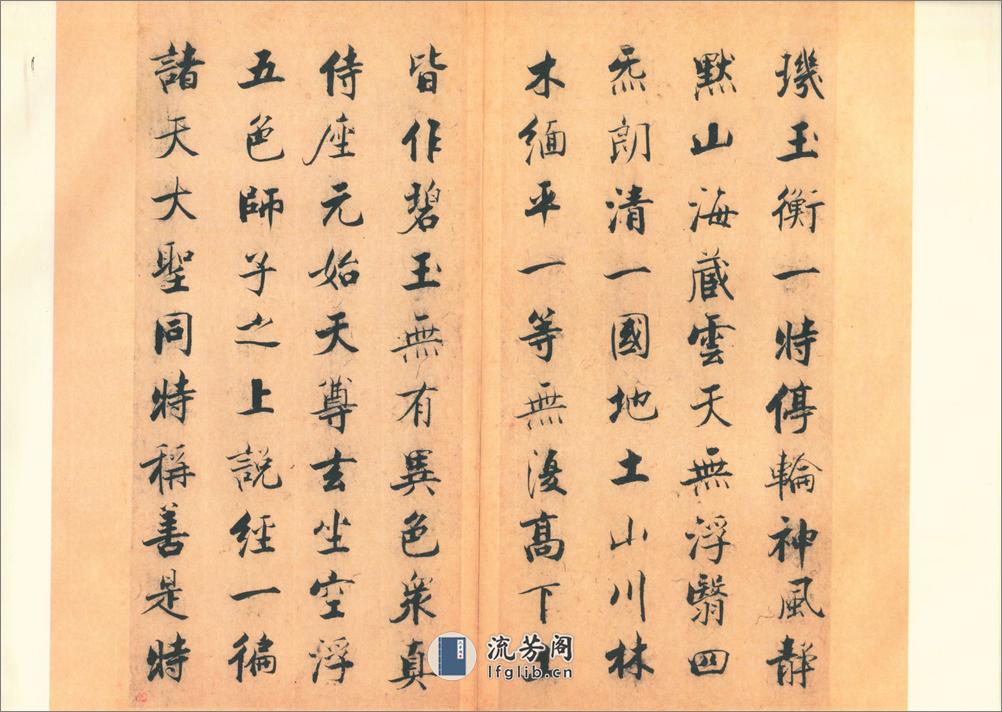 璣玉衡一時停輪神風靜
默山海藏雲天無浮翳四
炁朗清一國地土山川林
木緬平一等無復高下土
皆作碧玉無有異色衆真
侍座元始天尊玄坐空浮
五色師子之上說經一徧
諸天大聖同時稱善是時
流芳阁
lfglib.cn